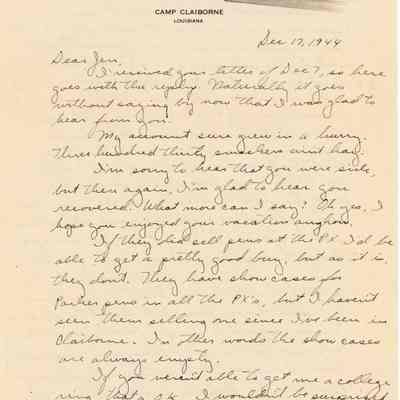 CAMP CLAIBORNE
LOUISIANA
Dec 17, 1944
Dear Jen,
I received your letter of Dec 7, so here
goes with the reply. Naturally it goes
without saying by now that I was glad to
hear from you.
My account sure grew in a hurry.
Three hundred thirty smackers ain't hay.
I'm sorry to hear that you were sick,
but then again, I'm glad to hear you
recovered. What more can I say? Oh yes, I
hope you enjoyed your vacation anyhow.
If they did sell pens at the PX I'd be
able to get a pretty good buy, but as it is,
they don't. They have show cases for
Parker pens in all the PX's, but I haven't
seen them selling one since I've been in
Claiborne. In other words the show cases
are always empty.
If you weren't able to get me a college
ring that's O.K. I wouldn't be surprised